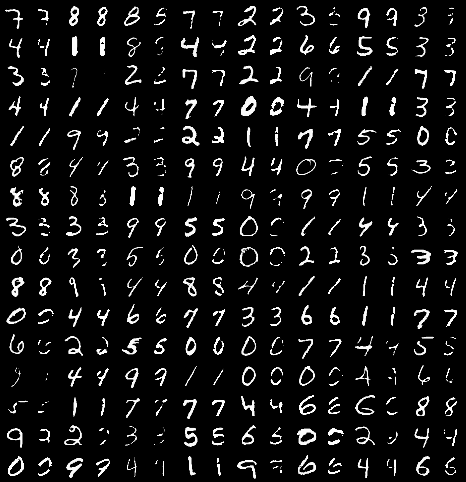 7 7 8 8 8 8 7 7 2 2 3 3 9 9 3 3
4 4 1 1 8 8 4 4 2 2 6 6 5 5 3 3
3 3 7 2 2 7 7 2 2 9 9 1 1 7 7
4 4 1 1 4 4 7 7 0 0 4 4 1 1 3 3
1 1 9 9 2 2 2 2 1 1 7 7 5 5 0 0
8 8 4 4 3 3 9 9 4 4 0 0 5 5 3 3
8 8 8 8 1 1 1 1 9 9 9 9 1 1 4 4
3 3 3 3 9 9 5 5 0 0 1 1 4 4 3 3
0 0 3 3 5 5 0 0 0 0 2 2 3 3 3 3
8 8 9 9 4 4 8 8 4 4 1 1 1 1 4 4
0 0 4 4 6 6 7 7 3 3 6 6 1 1 7 7
6 6 2 2 5 5 0 0 0 0 7 7 4 4 5 5
9 4 4 9 9 1 1 0 0 0 0 4 4 6 6
5 5 1 1 7 7 7 7 4 4 6 6 6 6 8 8
9 9 2 2 3 3 5 5 6 6 0 0 2 2 4 4
0 0 9 9 4 4 1 1 9 9 6 6 4 4 6 6